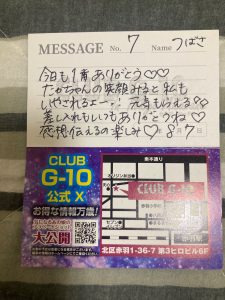 MESSAGE No. 7 Name つばさ
今日も1番ありがとう♡♡
たかちゃんの笑顔みると私も
いやされるよー…! 元気もらえる!♡
差し入れもいつもありがとうね♡
感想伝えるの楽しみ♡ 8月7日
CLUB
G-10
公式 X
お得な情報万歳!
大公開
東本通り
CLUB G-10
セブンイレブン
北区赤羽1-36-7 第3ヒロビル6F